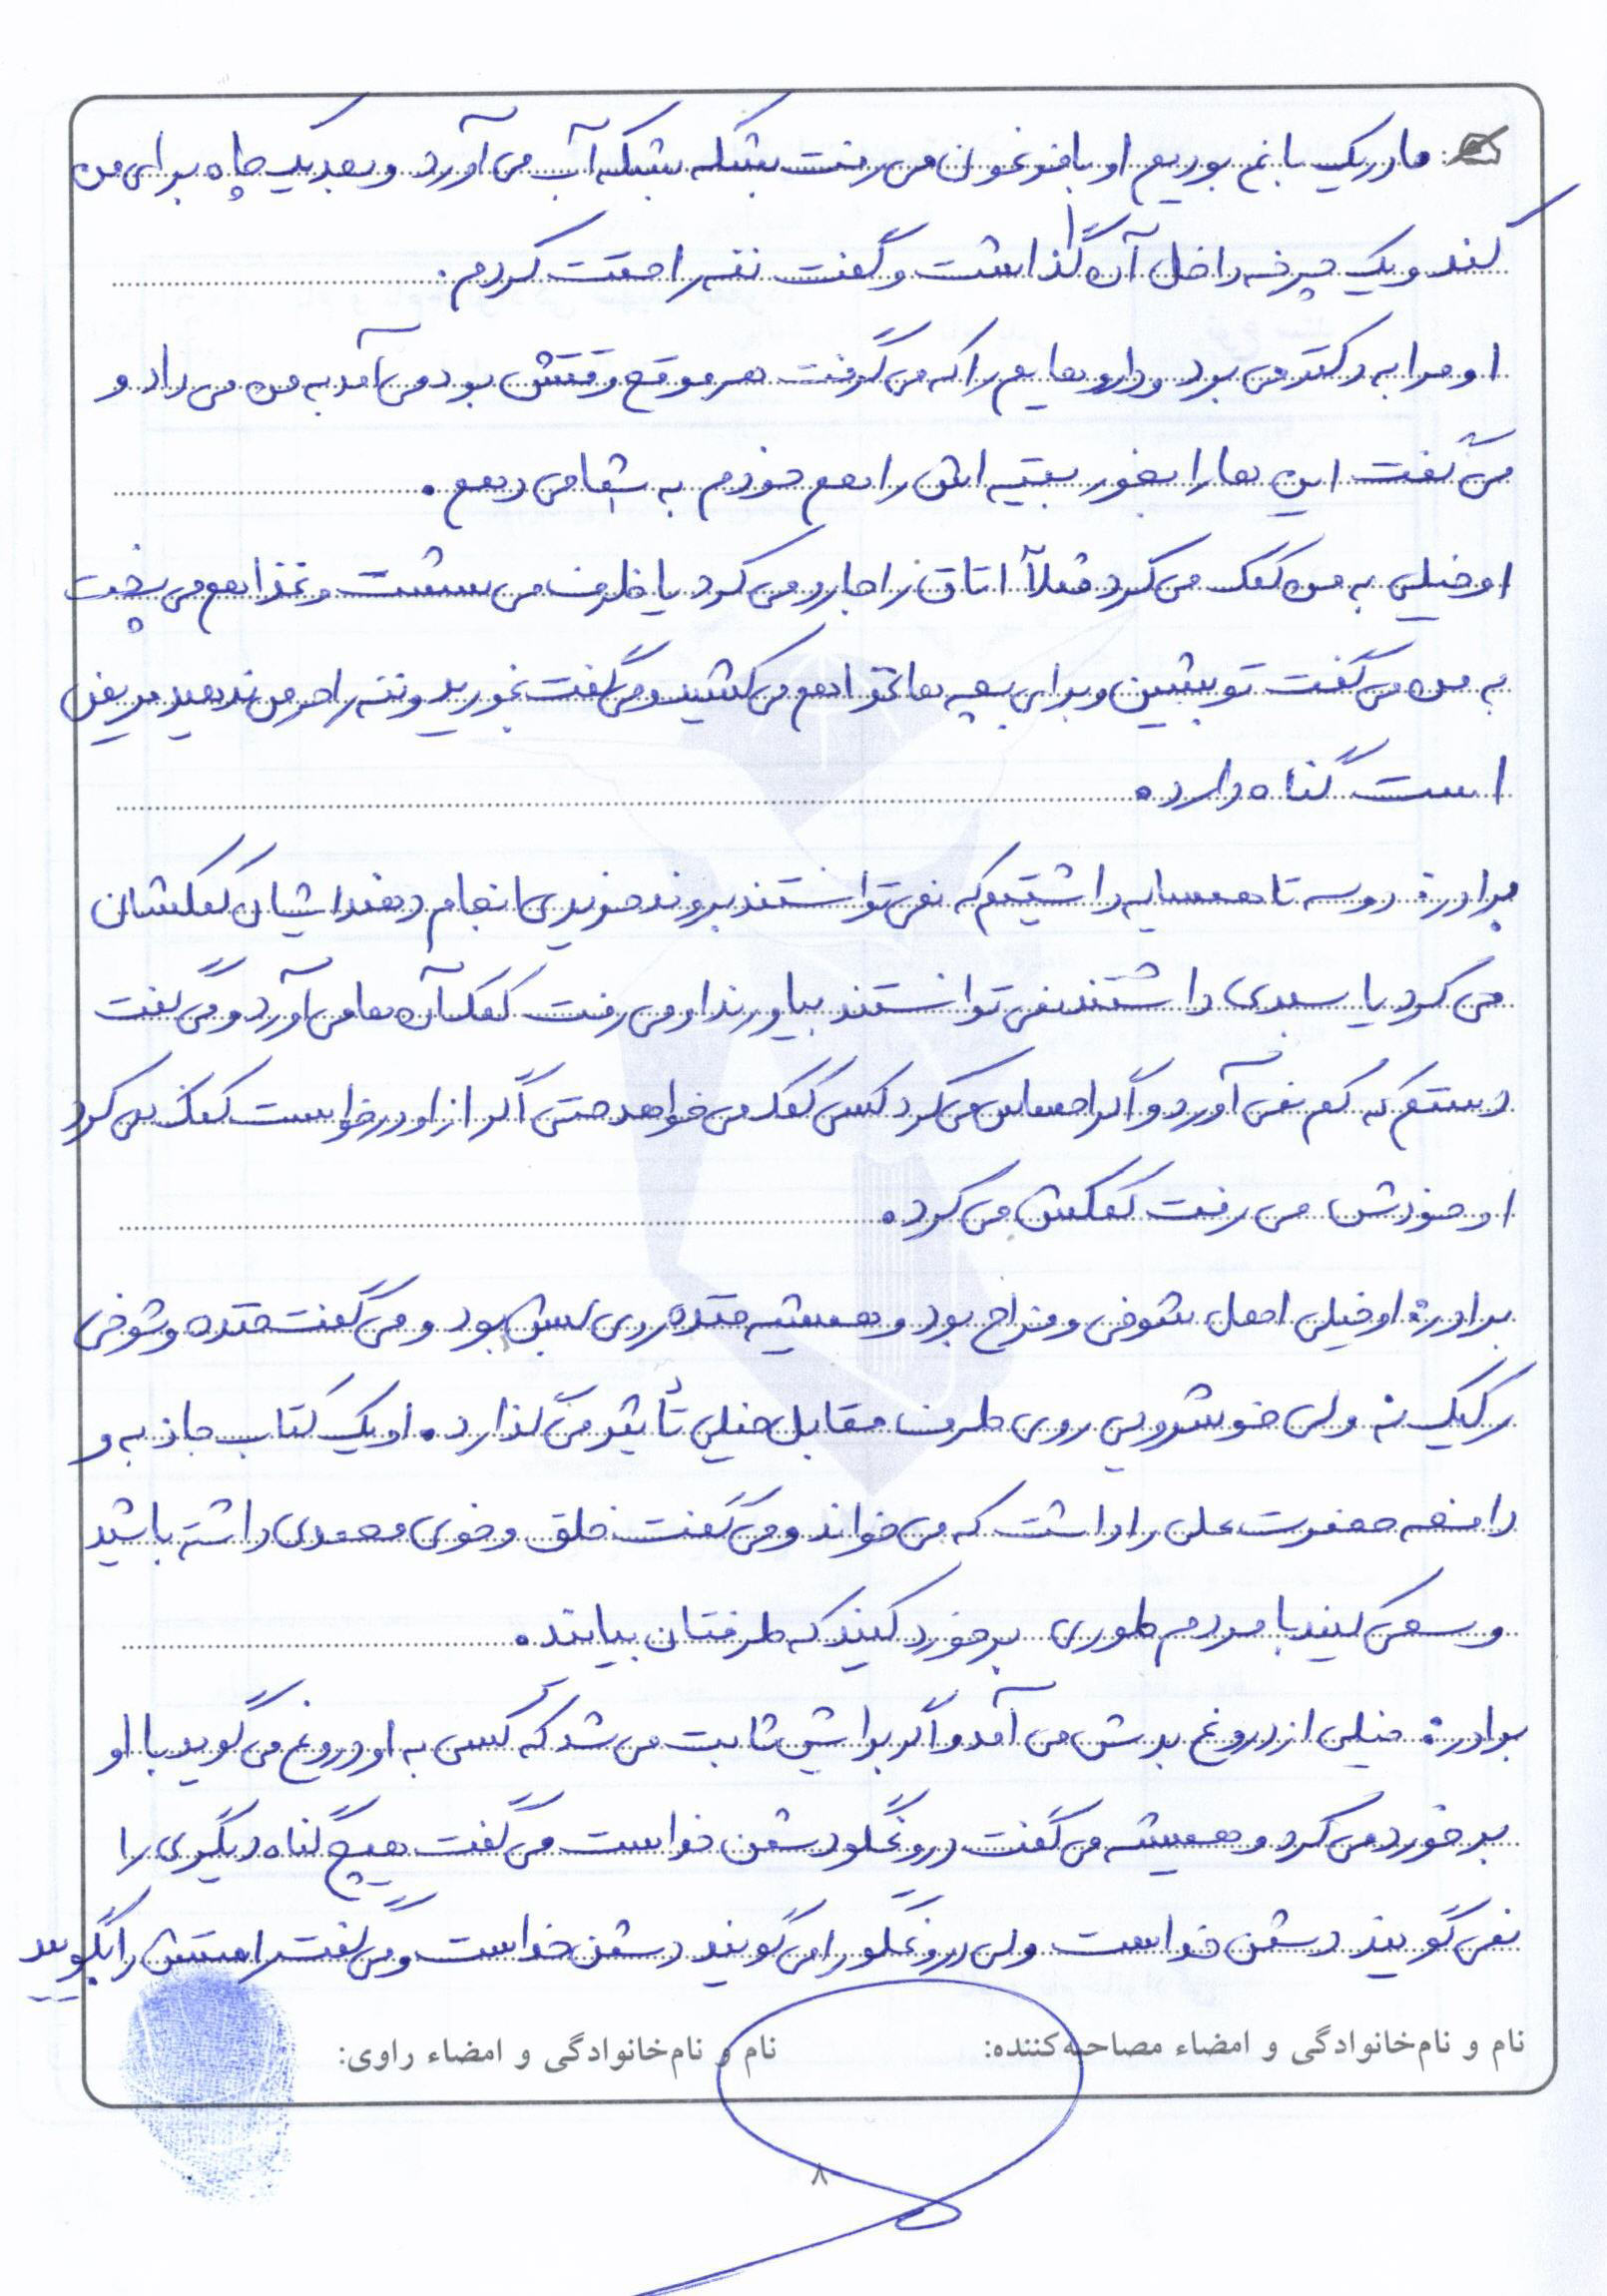 ما در یک باغ بودیم او با فرغون می رفت بشکه بشکه آب می آورد و بعد یک چاه برای من
کند و یک چرخه داخل آن گذاشت و گفت ننه راحتت کردم.
او مرا به دکتر می بود و داروهایم را که می گرفت هر موقع وقتش بود می آمد به من می داد و
می گفت این ها را بخور بقیه اش را هم خودم به شما می دهم.
او خیلی به من کمک می کرد مثلاً اتاق را جارو می کرد یا ظرف می شست و غذا هم می پخت
به من می گفت تو بشین و برای بچه ها غذا هم می کشید و می گفت بخورید و ننه را حرص ندهید مریض
است گناه دارد.
برادر: دو سه تا همسایه داشتیم که نمی توانستند بروند خریدی انجام دهند ایشان کمکشان
می کرد یا سبدی داشتند نمی توانستند بیاورند او می رفت کمک آن ها می آورد و می گفت
دستم که کم نمی آورد و اگر احساس می کرد کسی کمک می خواهد حتی اگر از او درخواست کمک نمی کرد
او خودش می رفت کمکش می کرد.
برادر: او خیلی اهل شوخی و مزاح بود و همیشه خنده روی لبش بود و می گفت خنده و شوخی
رکیک نه ولی خوشرویی روی طرف مقابل خیلی تأثیر می گذارد. او یک کتاب جاذبه و
دافعه حضرت علی را داشت که می خواند و می گفت خلق و خوی محمدی داشته باشید
و سعی کنید با مردم طوری برخورد کنید که طرفتان بیایند.
برادر: خیلی از دروغ بدش می آمد و اگر برایش ثابت می شد که کسی به او دروغ می گوید با او
برخورد می کرد و همیشه می گفت دروغگو دشمن خداست می گفت هیچ گناه دیگری را
نمی گویند دشمن خداست ولی دروغگو را می گویند دشمن خداست و می گفت راستش را بگویید
نام و نام‌خانوادگی و امضاء مصاحبه‌کننده: نام و نام‌خانوادگی و امضاء راوی:
۸